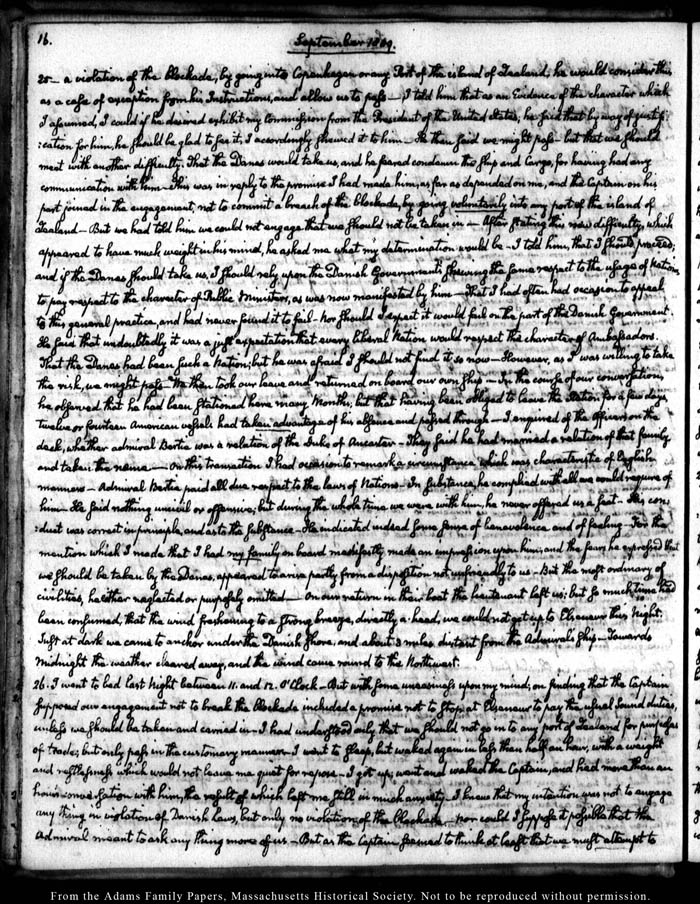 16.
September 1809.
25— a violation of the blockade, by going into Copenhagen or any Port of the island of Zealand, he would consider this
as a case of exception from his Instructions, and allow us to pass— I told him that as an Evidence of the character which
I assumed, I could if he desired exhibit my Commission from the President of the United States, he said that by way of justifi
:cation for him, he should be glad to see it, I accordingly shewed it to him— He then said we might pass— but that we should
meet with another difficulty, That the Danes would take us, and he feared condemn the Ship and Cargo, for having had any
communication with him— This was in reply to the promise I had made him, as far as depended on me, and the Captain on his
part joined in the engagement, not to commit a breach of the blockade, by going voluntarily into any port of the island of
Zealand— But we had told him we could not engage that we should not be taken in— After stating this new difficulty, which
appeared to have much weight in his mind, he asked me what my determination would be— I told him, that I should proceed;
and if the Danes should take us, I should rely upon the Danish Government's shewing the same respect to the usages of Nations,
to pay respect to the character of Public Ministers, as was now manifested by him— That I had often had occasion to appeal
to this general practice, and had never found it to fail— Nor should I expect it would fail on the part of the Danish Government.
He said that undoubtedly it was a just expectation that every liberal Nation would respect the character of Ambassadors.
That the Danes had been such a Nation; but he was afraid I should not find it so now— However, as I was willing to take
the risk, we might pass— We then took our leave and returned on board our own Ship— In the course of our conversation,
he observed that he had been stationed here many Months; but that having been obliged to leave the Station for a few days,
twelve or fourteen American vessels had taken advantage of his absence and passed through— I enquired of the Officers on the
deck, whether admiral Bertie was a relation of the Duke of Ancaster— They said he had married a relation of that family
and taken the name— On this transaction I had occasion to remark a circumstance which was characteristic of English
manners— Admiral Bertie paid all due respect to the laws of Nations— In substance, he complied with all we could require of
him— He said nothing uncivil or offensive; but during the whole time we were with him, he never offered us a seat— His con
:duct was correct in principle, and as to the substance— He indicated indeed some sense of benevolence and of feeling— For the
mention which I made that I had my family on board manifestly made an impression upon him; and the fears he expressed that
we should be taken by the Danes, appeared to arise partly from a disposition not unfriendly to us— But the most ordinary of
civilities, he either neglected or purposely omitted— On our return in their boat the Lieutenant left us; but so much time had
been consumed, that the wind freshening to a strong breeze, directly a-head, we could not get up to Elseneur this Night.
Just at dark we came to anchor under the Danish shore, and about 3 miles distant from the Admiral's Ship— Towards
Midnight the weather cleared away, and the wind came round to the Northwest.
26. I went to bed last Night between 11. and 12. O'Clock— But with some uneasiness upon my mind; on finding that the Captain
supposed our engagement not to break the blockade included a promise not to stop at Elseneur to pay the usual Sound duties,
unless we should be taken and carried in— I had understood only that we should not go in to any port of Zealand for purposes
of trade; but only pass in the customary manner— I went to sleep, but waked again in less than half an hour, with a weight
and restlessness which would not leave me quiet for repose— I got up; went and waked the Captain; and had more than an
hour's conversation with him, the result of which left me still in much anxiety— I knew that my intention was not to engage
any thing in violation of Danish laws, but only no violation of the blockade— nor could I suppose it possible that the
Admiral meant to ask any thing more of us— But as the Captain seemed to think at least that we must attempt to
From the Adams Family Papers, Massachusetts Historical Society. Not to be reproduced without permission.